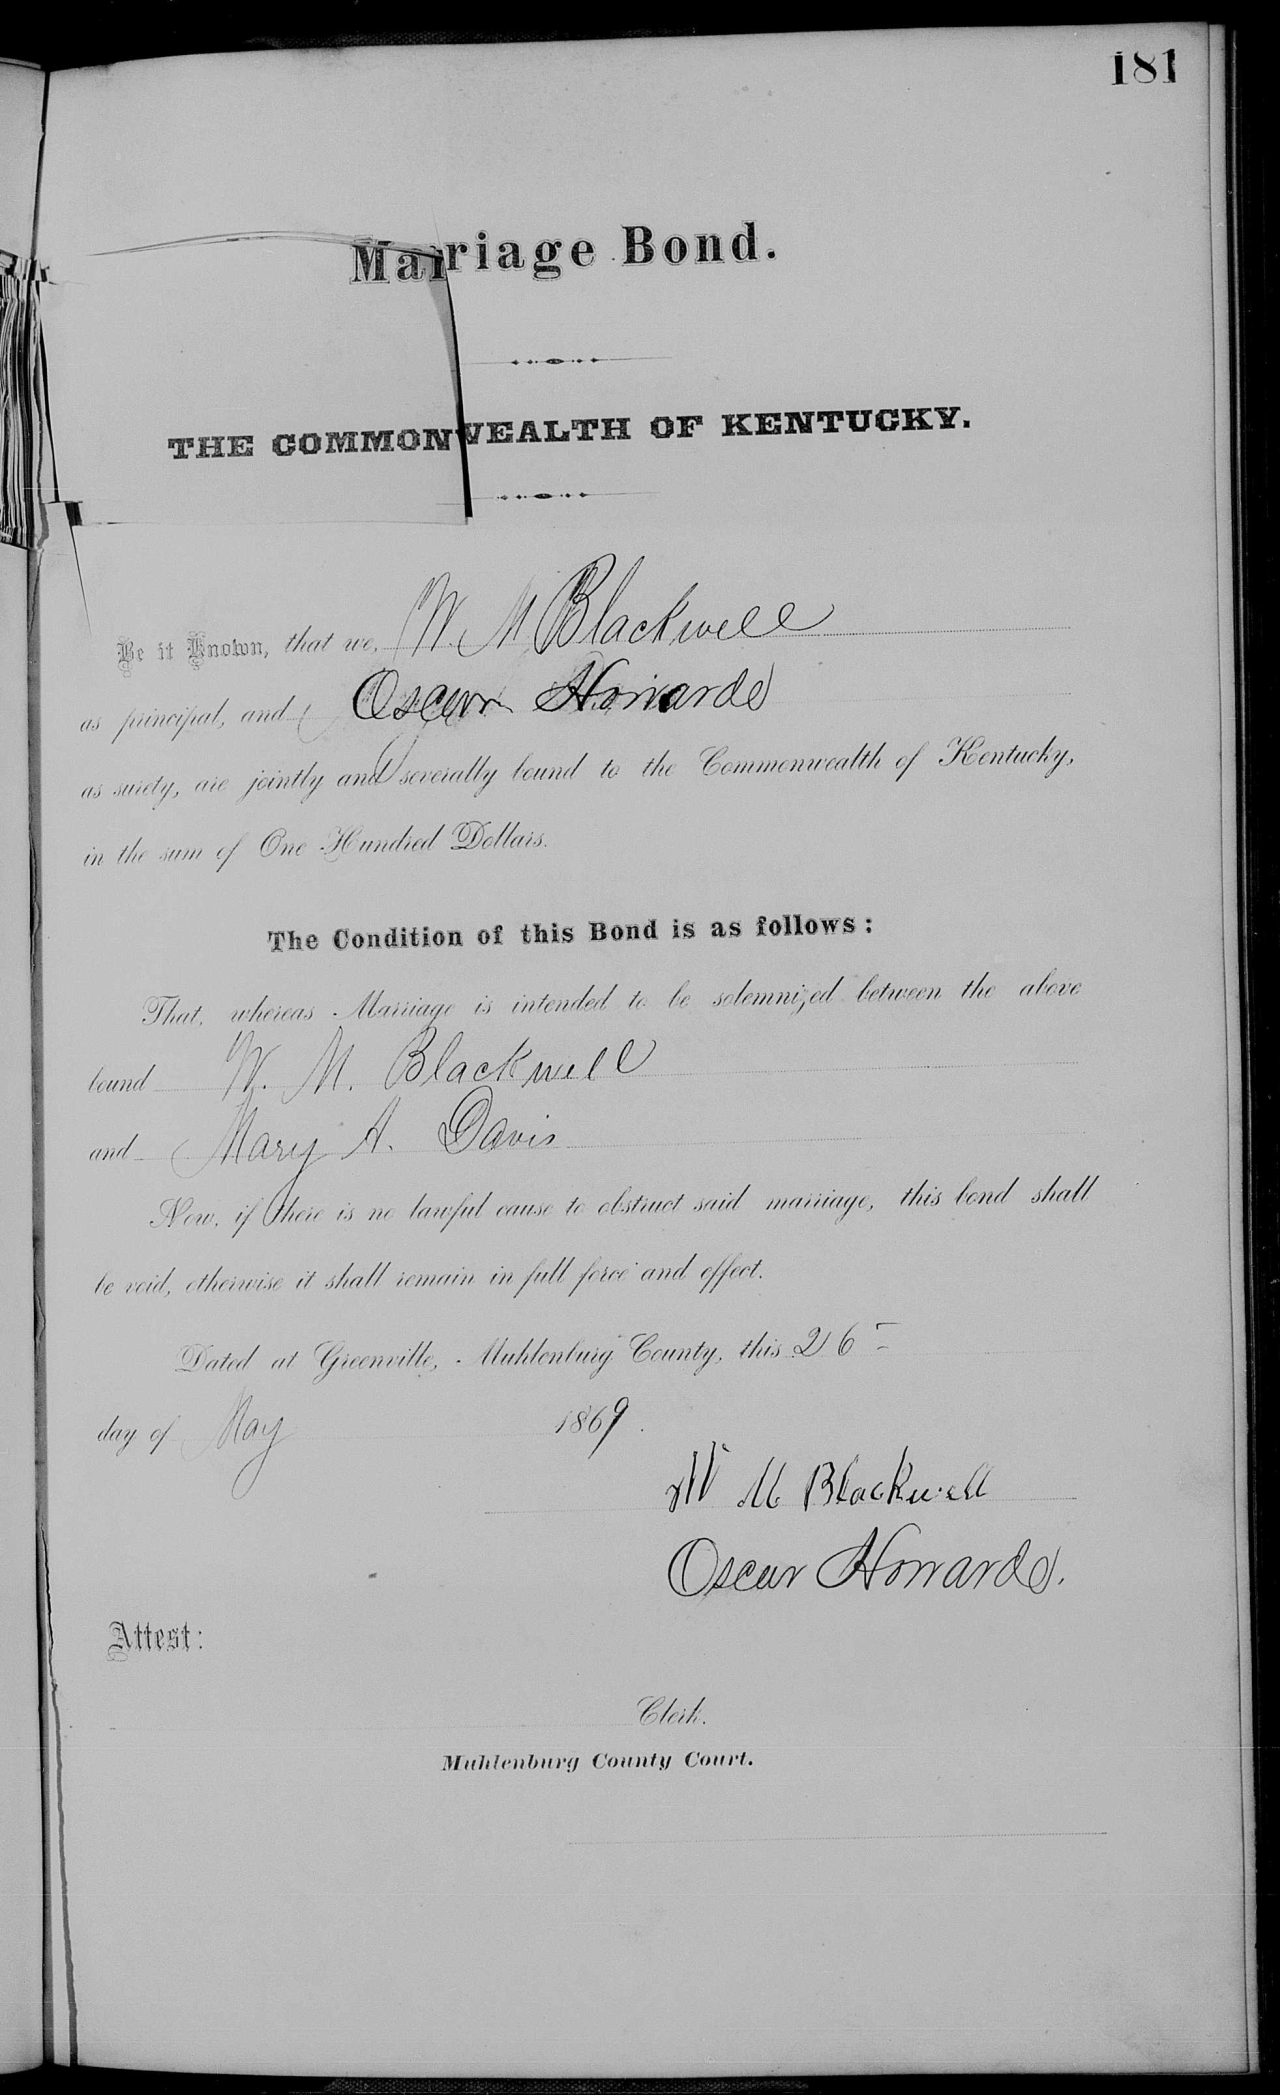 181
Marriage Bond.
THE COMMONWEALTH OF KENTUCKY.
Be it Known, that we, W. M Blackwell
as principal, and Oscar Howard
as surety, are jointly and severally bound to the Commonwealth of Kentucky,
in the sum of One Hundred Dollars.
The Condition of this Bond is as follows:
That, whereas Marriage is intended to be solemnized between the above
bound W. M. Blackwell
and Mary A. Davis
Now, if there is no lawful cause to obstruct said marriage, this bond shall
be void, otherwise it shall remain in full force and effect.
Dated at Greenville, Muhlenburg County, this 26
day of May 1869.
W M Blackwell
Oscar Howard.
Attest:
Clerk.
Muhlenburg County Court.